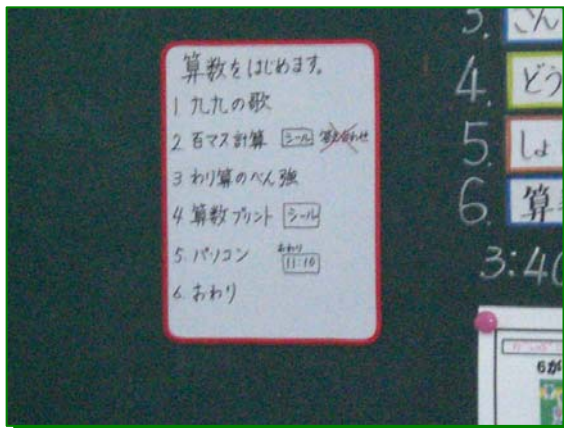 算数をはじめます。
1 九九の歌
2 百マス計算 シール 答え合わせ
3 わり算のべん強
4 算数プリント シール
5. パソコン おわり 11:10
6. おわり
3. こん
4. どう
5. しょ
6. 算
3:40
6が